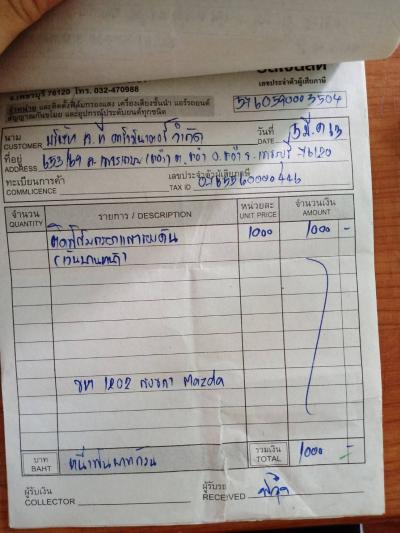 จ.เพชรบุรี 76120 โทร. 032-470988
จำหน่าย และติดตั้งฟิล์มกรองแสง เครื่องเสียงชั้นนำ แอร์รถยนต์
สัญญาณกันขโมย และอุปกรณ์ประดับยนต์ทุกชนิด
เลขประจำตัวผู้เสียภาษี
3760590003504
นาม CUSTOMER บริษัท จำกัด
วันที่ DATE 5 มี.ค 63
ที่อยู่ ADDRESS 653/69 76120
ทะเบียนการค้า COMMLICENCE
เลขประจำตัวผู้เสียภาษี TAX ID 0765560000446
จำนวน QUANTITY รายการ / DESCRIPTION หน่วยละ UNIT PRICE จำนวนเงิน AMOUNT
ติดฟิล์มกรองแสงรถยนต์ 1000 1000 -
(บานหน้า)
1202 สงขลา Mazda
บาท BAHT หนึ่งพันบาทถ้วน รวมเงิน TOTAL 1000 -
ผู้รับเงิน COLLECTOR
ผู้รับของ RECEIVED